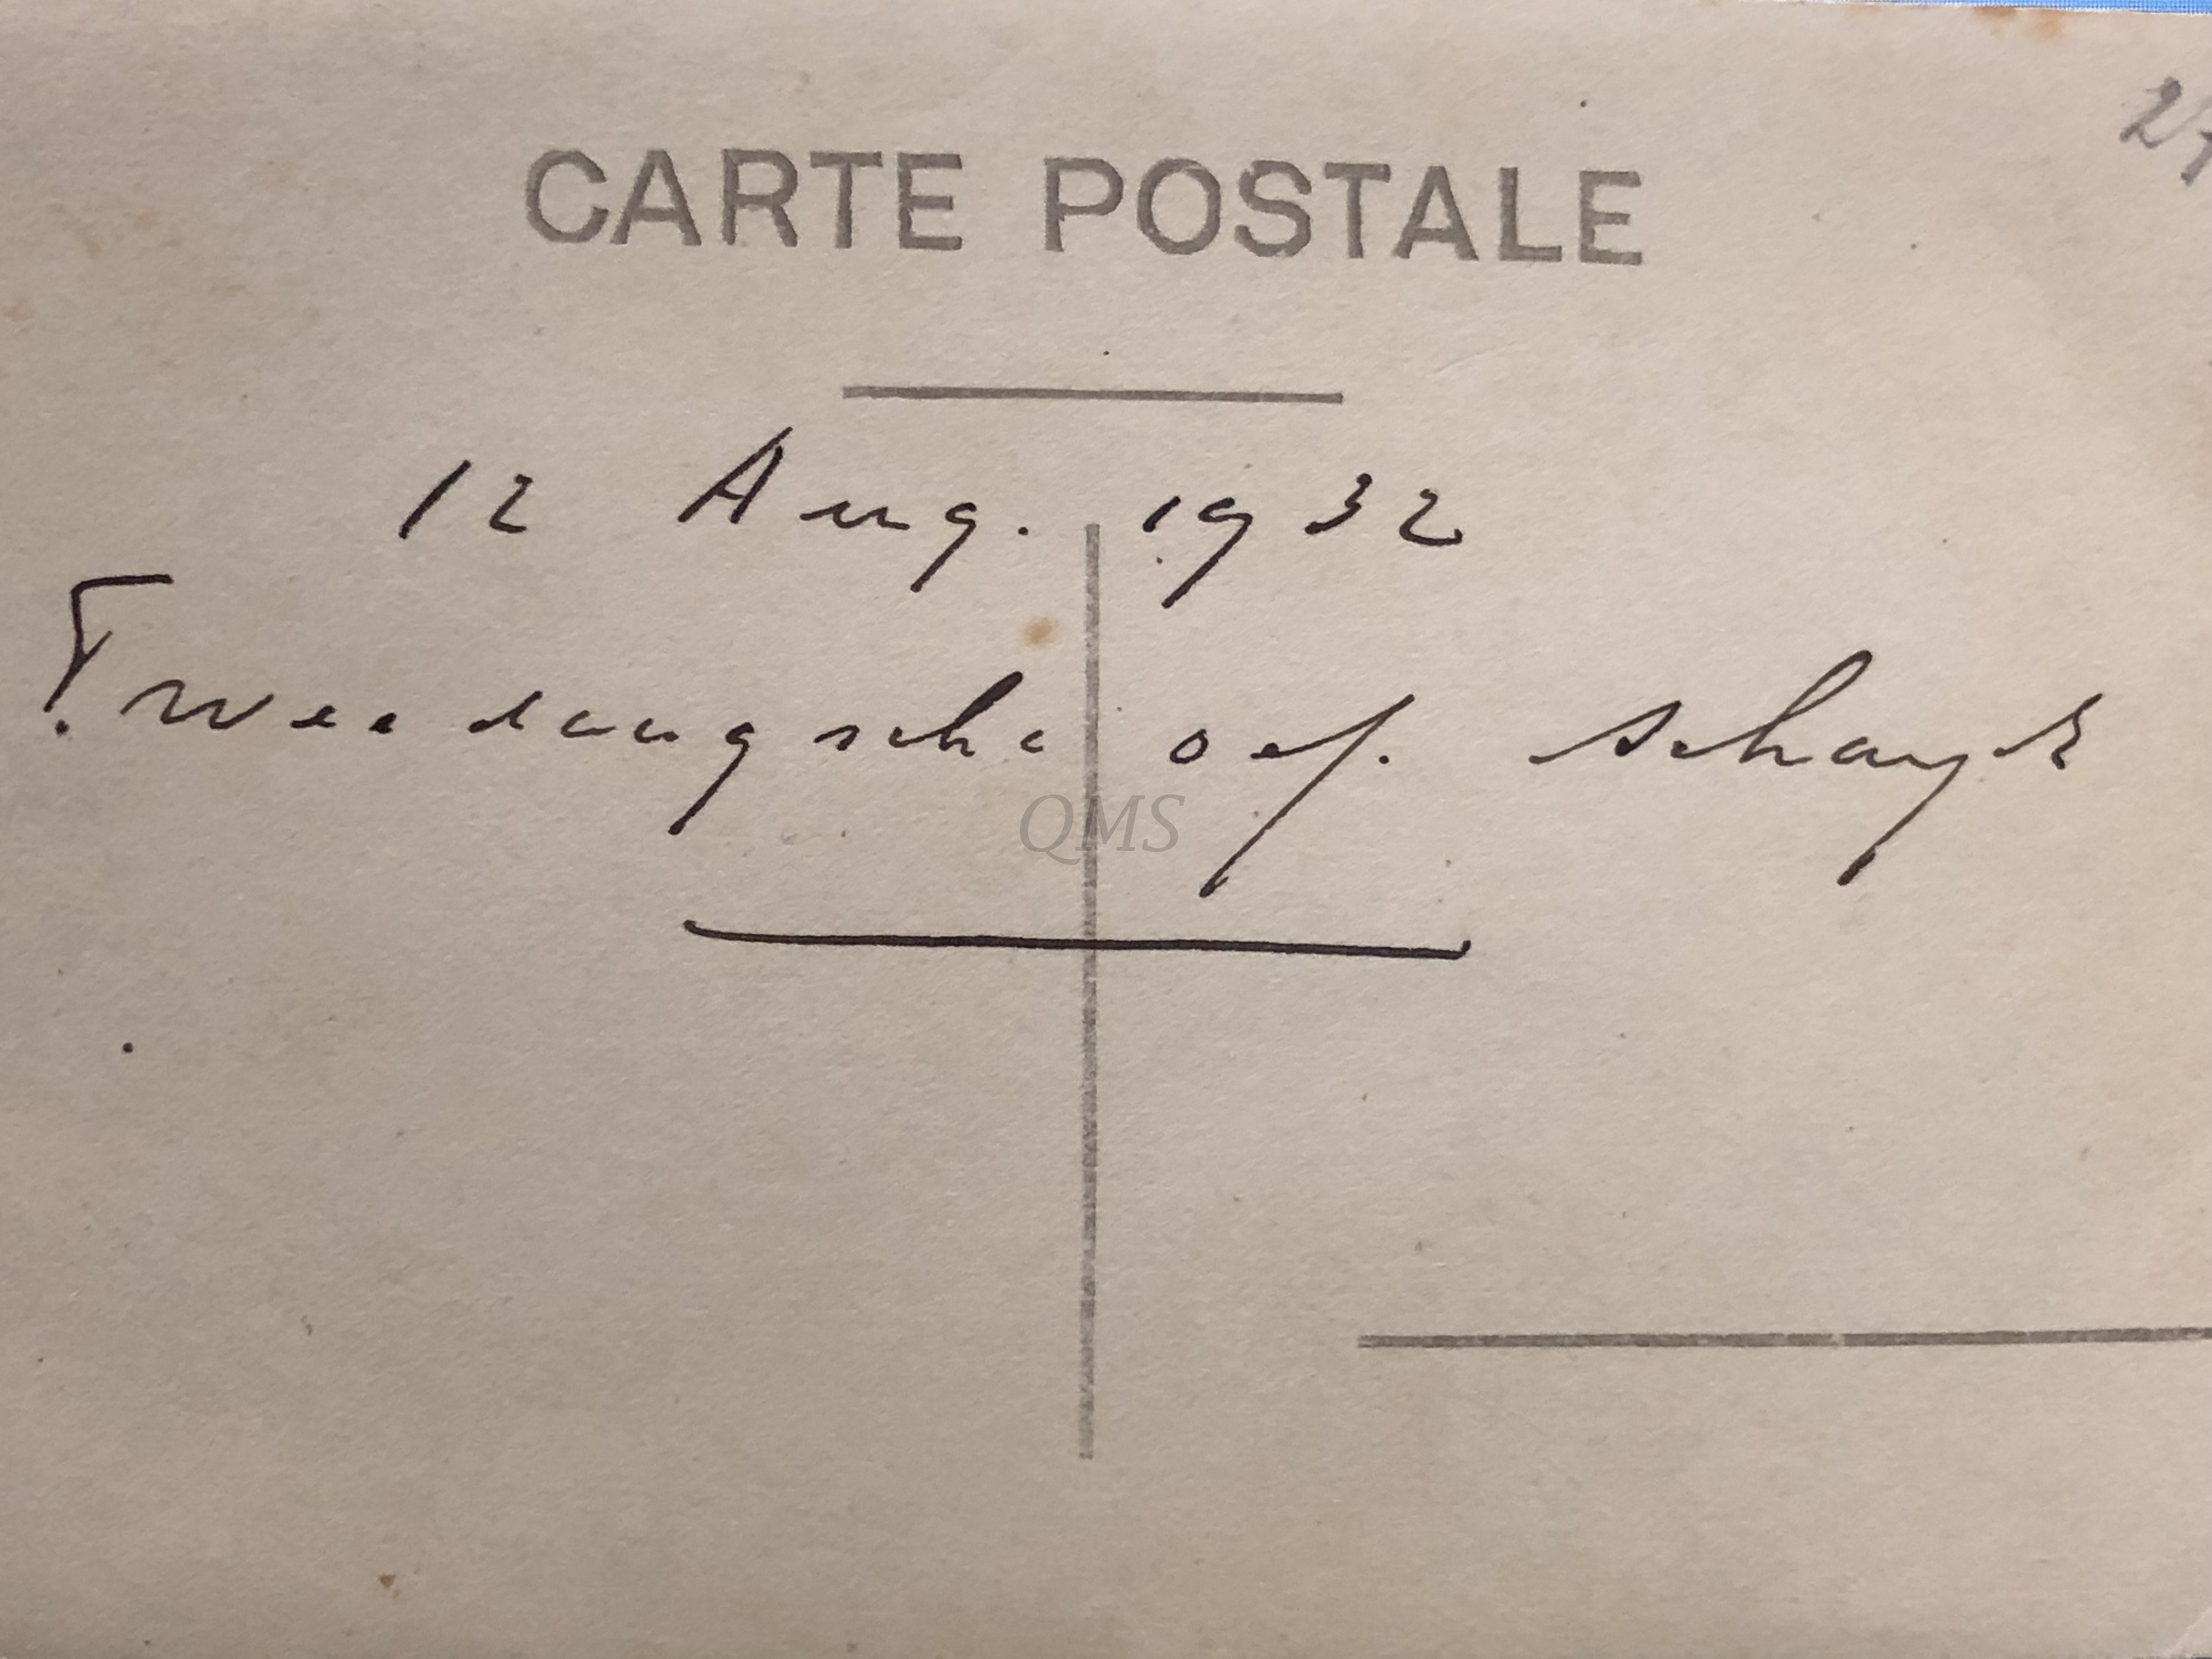 27
CARTE POSTALE
12 Aug. 1932
Tweedaagsche oef. Schayk
QMS